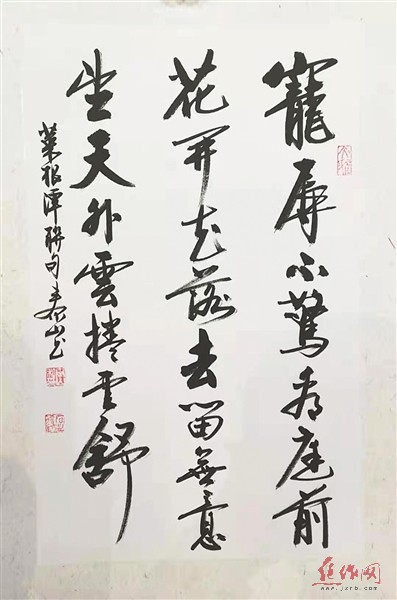 寵辱不驚看庭前
花開花落去留無意
望天外雲捲雲舒
菜根潭聯句春山书
焦作网
www.jzrb.com